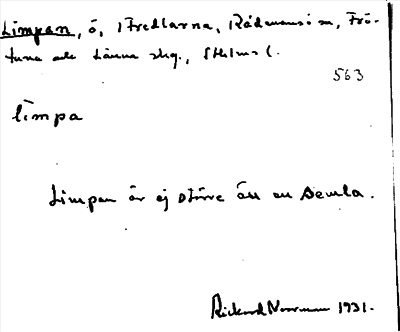 Limpan, ö, i Fredlarna, Rådmansö sn, Frö-
tuna och Länna skg., Sthlms l.
563
limpa
Limpan är ej större än en semla.
Rickard Norrman 1931.